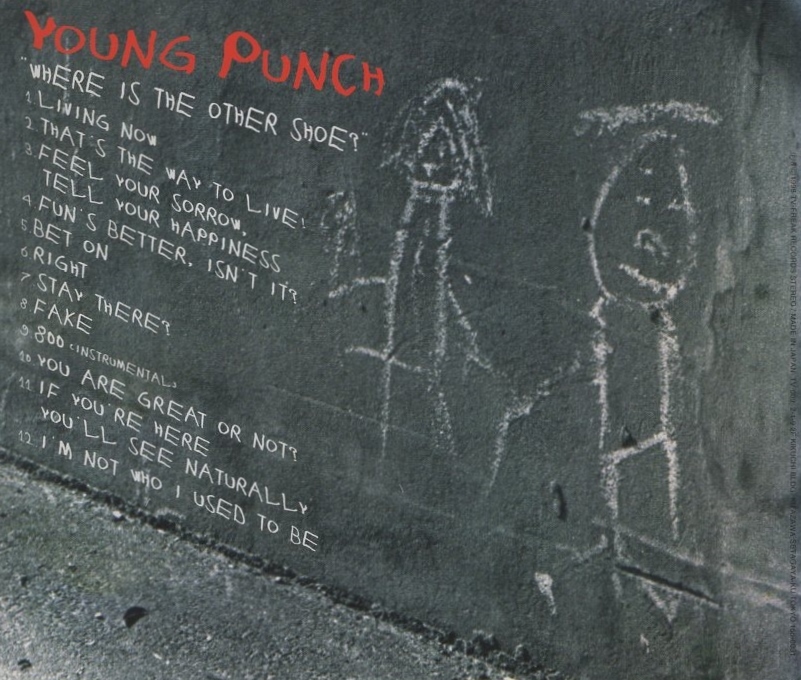 YOUNG PUNCH
"WHERE IS THE OTHER SHOE?"
1. LIVING NOW
2. THAT'S THE WAY TO LIVE!
3. FEEL YOUR SORROW,
TELL YOUR HAPPINESS
4. FUN'S BETTER, ISN'T IT?
5. BET ON
6. RIGHT
7. STAY THERE?
8. FAKE
9. 800 (INSTRUMENTAL)
10. YOU ARE GREAT OR NOT?
11. IF YOU'RE HERE
YOU'LL SEE NATURALLY
12. I'M NOT WHO I USED TO BE
RECORDS STEREO. MADE IN JAPAN